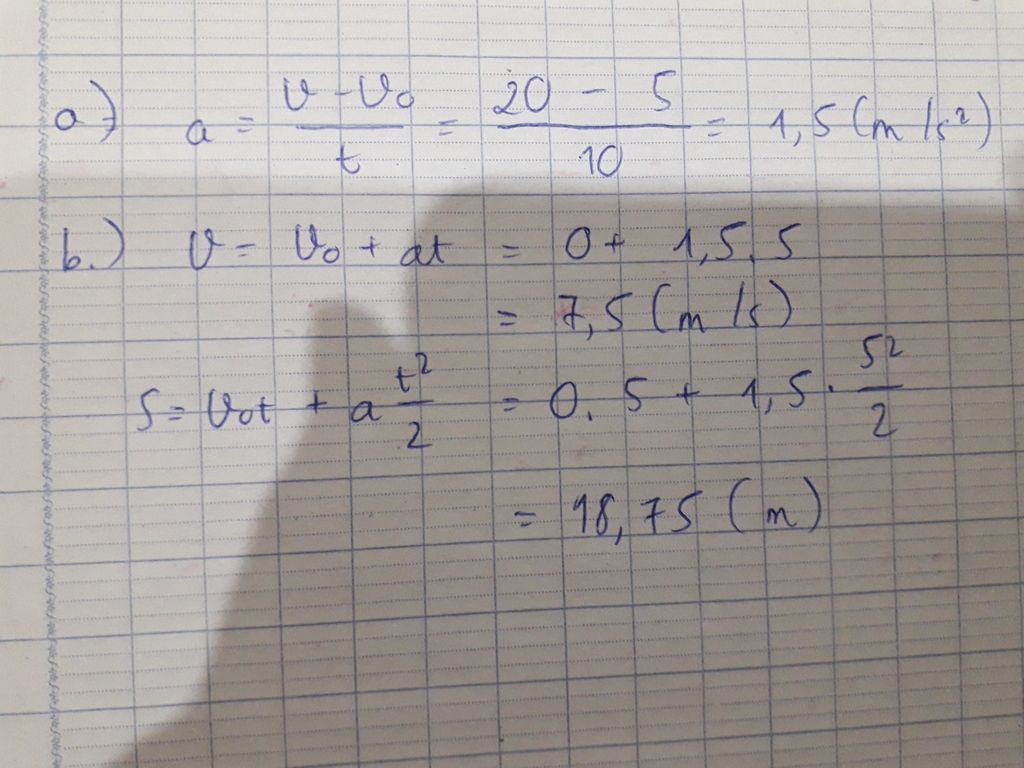 a) a = (v - v₀)/t = (20 - 5)/10 = 1,5 (m/s²)
b.) v = v₀ + at = 0 + 1,5.5
= 7,5 (m/s)
S = v₀t + a t²/2 = 0.5 + 1,5 . 5²/2
= 18,75 (m)